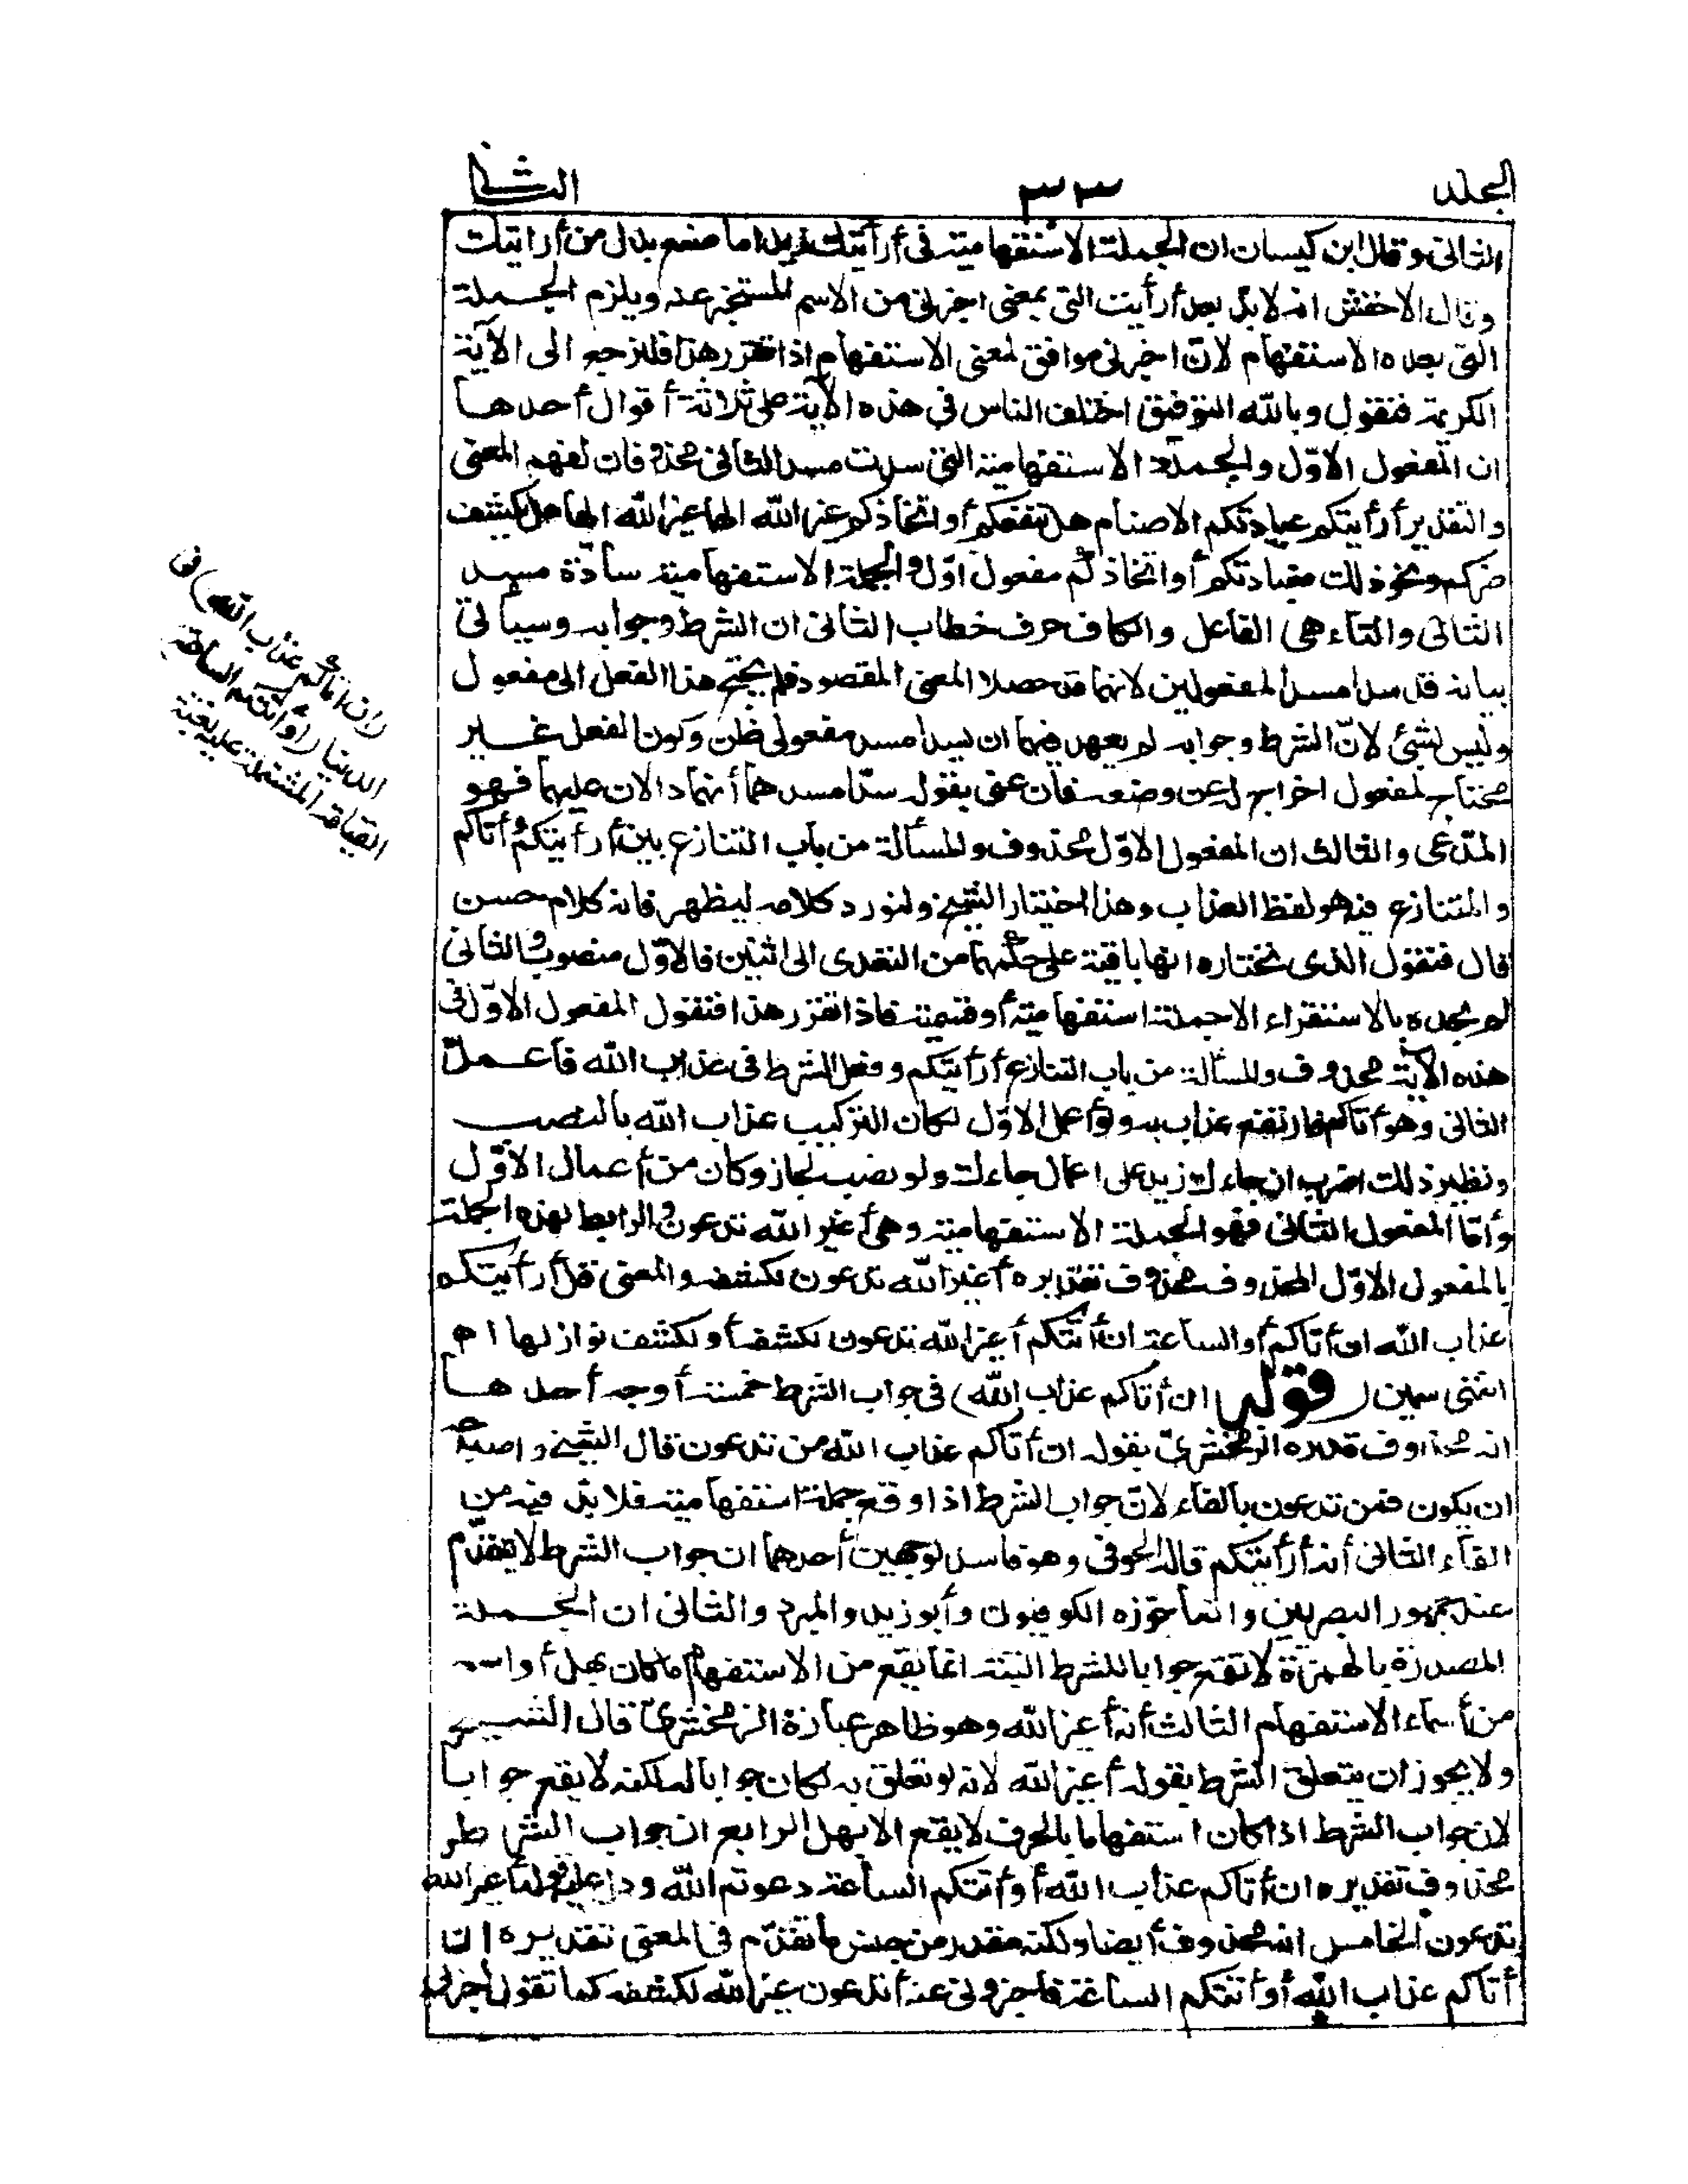 المجلد ٣٣ الثانى
الثانى وقال ابن كيسان ان الجملة الاستفهامية فى أرأيتك زيدا ما صنع بدل من أرايتك
وقال الاخفش انه لا بدّ بعد أرأيت التى بمعنى اخبرنى من الاسم المستخبر عنه ويلزم الجملة
التى بعده الاستفهام لانّ اخبرنى موافق لمعنى الاستفهام اذا تقرر هذا فلنرجع الى الآية
الكريمة فنقول وبالله التوفيق اختلف الناس فى هذه الآية على ثلاثة أقوال أحدها
ان المفعول الاوّل والجملة الاستفهامية التى سدت مسد الثانى محذوفان لفهم المعنى
والتقدير أرأيتكم عبادتكم الاصنام هل تنفعكم أو اتخاذكم غير الله الها هل يكشف
ضركم ونحو ذلك فعبادتكم أو اتخاذكم مفعول اوّل والجملة الاستفهامية سادّة مسد
الثانى والتاء هى الفاعل والكاف حرف خطاب الثانى ان الشرط وجوابه وسيأتى
بيانه قد سدا مسد المفعولين لانهما قد حصلا المعنى المقصود فلم يحتج هذا الفعل الى مفعول
وليس بشئ لانّ الشرط وجوابه لم يعهد فيهما ان يسدا مسد مفعولى ظن وكون الفعل غير
محتاج لمفعول اخراج له عن وضعه فان عنى بقوله سدّا مسدهما أنهما دالان عليهما فهو
المدّعى والثالث ان المفعول الاوّل محذوف والمسألة من باب التنازع بين أرأيتكم وأتاكم
والمتنازع فيه هو لفظ العذاب وهذا اختيار الشيخ ولنورد كلامه ليظهر فانه كلام حسن
قال فنقول الذى نختاره انها باقية على حكمها من التعدى الى اثنين فالاوّل منصوب والثانى
لم نجده بالاستقراء الا جملة استفهامية أو قسمية فاذا تقرر هذا فنقول المفعول الاوّل فى
هذه الآية محذوف والمسألة من باب التنازع أرأيتكم وفعل الشرط فى عذاب الله فأعمل
الثانى وهو أتاكم فارتفع عذاب به ولو أعمل الاوّل لكان التركيب عذاب الله بالنصب
ونظير ذلك اضرب ان جاءك زيد على اعمال جاءك ولو نصب لجاز وكان من أعمال الاوّل
وأمّا المفعول الثانى فهو الجملة الاستفهامية وهى أغير الله تدعون والرابط لهذه الجملة
بالمفعول الاوّل المحذوف محذوف تقديره أغير الله تدعون لكشفه والمعنى قل أرأيتكم
عذاب الله ان أتاكم أو الساعة ان أتتكم أغير الله تدعون لكشفه أو لكشف نوازلها اه
انتهى سمين (قوله ان أتاكم عذاب الله) فى جواب الشرط خمسة أوجه أحدها
انه محذوف قدره الزمخشرىّ بقوله ان أتاكم عذاب الله من تدعون قال الشيخ واصلاحه
ان يكون فمن تدعون بالفاء لانّ جواب الشرط اذا وقع جملة استفهامية فلا بدّ فيه من
الفاء الثانى أنه أرأيتكم قاله الحوفى وهو فاسد لوجهين أحدهما ان جواب الشرط لا يتقدّم
عند جمهور البصريين وانما جوّزه الكوفيون وأبو زيد والمبرد والثانى ان الجملة
المصدرة بالهمزة لا تقع جوابا للشرط البتة انما يقع من الاستفهام ما كان بهل أو اسم
من أسماء الاستفهام الثالث أنه أغير الله وهو ظاهر عبارة الزمخشرىّ قال الشيخ
ولا يجوز ان يتعلق الشرط بقوله أغير الله لانه لو تعلق به لكان جوابا له لكنه لا يقع جوابا
لان جواب الشرط اذا كان استفهاما بالحرف لا يقع الا بهل الرابع ان جواب الشرط
محذوف تقديره ان أتاكم عذاب الله أو أتتكم الساعة دعوتم الله ودل عليه قوله أغير الله
تدعون الخامس انه محذوف أيضا ولكنه مقدر من جنس ما تقدّم فى المعنى تقديره ان
أتاكم عذاب الله أو أتتكم الساعة فاخبرونى عنه أتدعون غير الله لكشفه كما تقول اخبرنى
(ان أتاكم عذاب الله) فى
الدنيا (أو أتتكم الساعة)
القيامة المشتملة عليه بغتة